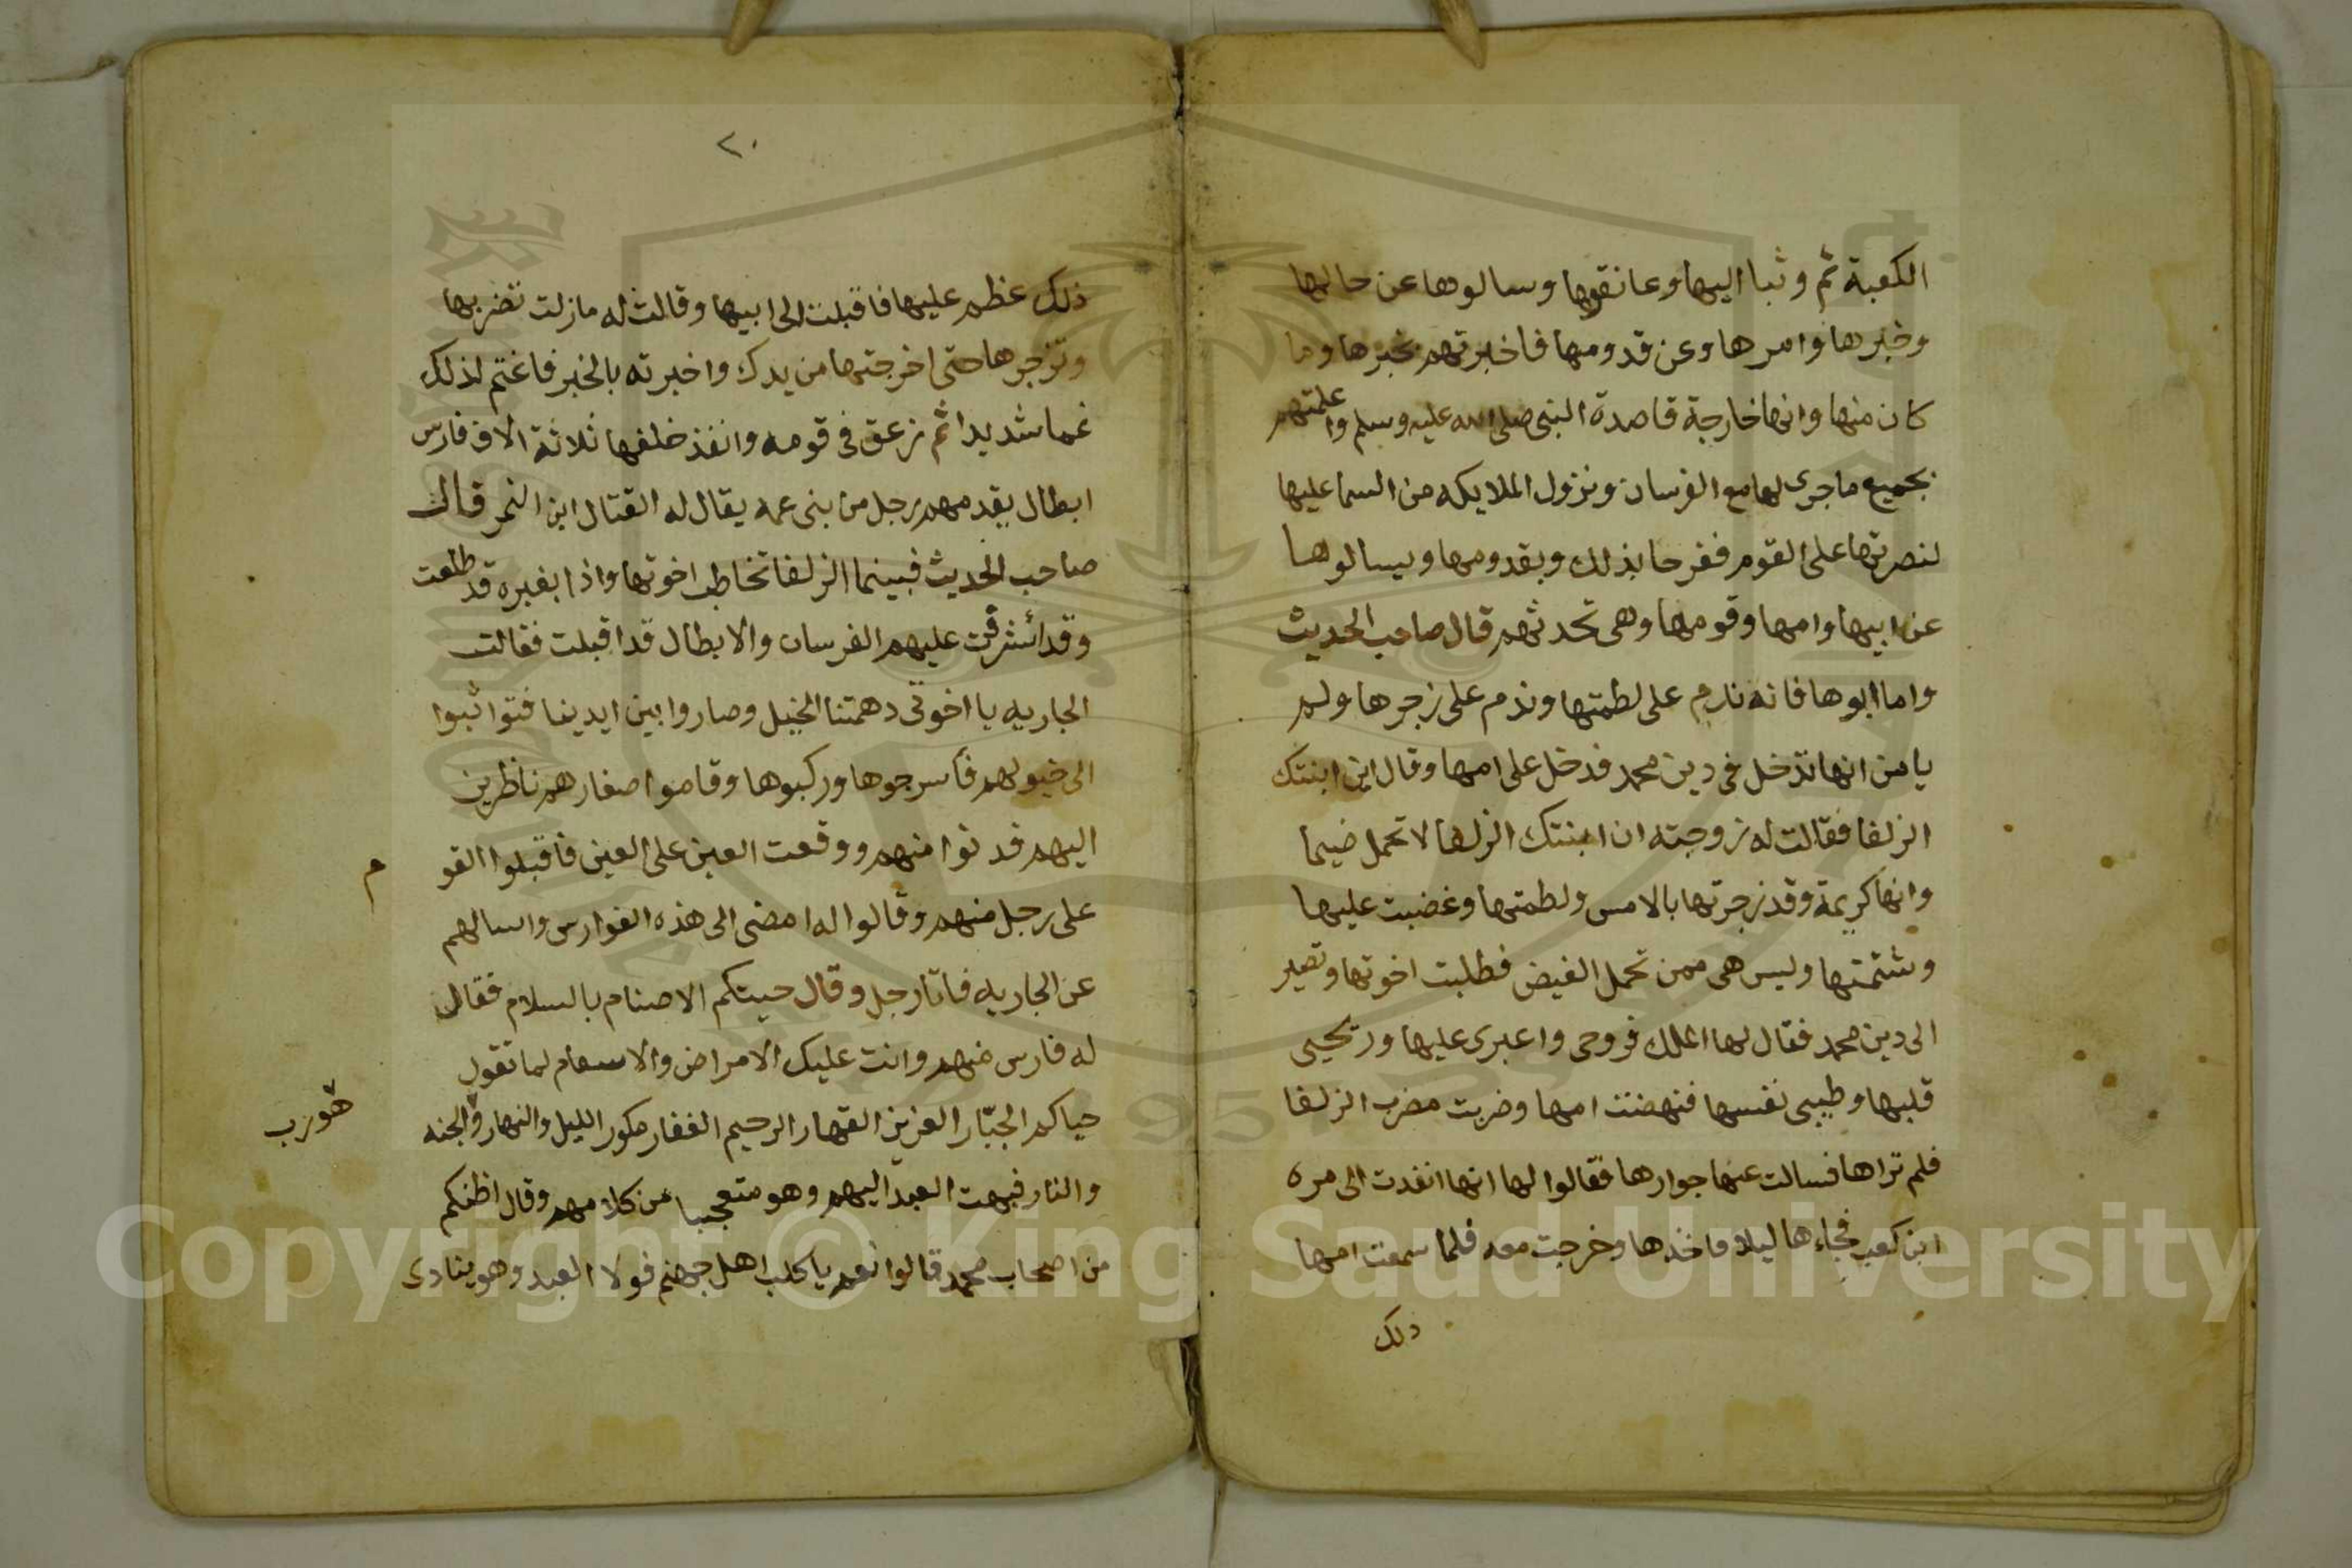 الكعبة ثم وثبا اليها وعانقوها وسالوها عن حالها
وخبرها وامرها وعن قدومها فاخبرتهم بخبرها وما
كان منها وانها خارجة قاصدة النبى صلى الله عليه وسلم واعلمتهم
بجميع ماجرى لها مع الفرسان ونزول الملايكه من السما عليها
لنصرتها على القوم ففرحا بذلك وبقدومها ويسالوها
عن ابيها وامها وقومها وهى تحدثهم قال صاحب الحديث
واما ابوها فانه ندم على لطمتها وندم على زجرها ولم
يامن انها تدخل فى دين محمد فدخل على امها وقال اين ابنتك
الزلفا فقالت له زوجته ان ابنتك الزلفا لا تحمل ضيما
وانها كريمة وقد زجرتها بالامس ولطمتها وغضبت عليها
وشتمتها وليس هى ممن تحمل الغيض فطلبت اخوتها وتصير
الى دين محمد فقال لها الملك فروحى واعبرى عليها وريحيى
قلبها وطيبى نفسها فنهضت امها وضربت مضرب الزلفا
فلم تراها فسالت عنها جوارها فقالوا لها انها انفدت الى مره
ابن كعب فجاءها ليلا فاخدها وخرجت معه فلما سمعت امها
ذلك
٢٠
ذلك عظم عليها فاقبلت الى ابيها وقالت له مازلت تضربها
وتزجرها حتى اخرجتها من يدك واخبرته بالخبر فاغتم لذلك
غما شديدا ثم زعق فى قومه وانفذ خلفها ثلاثة الاف فارس
ابطال يقدمهم رجل من بنى عمه يقال له القتال ابن النمر قال
صاحب الحديث فبينما الزلفا تخاطب اخوتها واذا بغبره قد طلعت
وقد اشرقت عليهم الفرسان والابطال قد اقبلت فقالت
الجاريه يا اخوتى دهمتنا الخيل وصاروا بين ايدينا فتواثبوا
الى خيولهم فأسرجوها وركبوها وقاموا صفارهم ناظرين
اليهم فدنوا منهم ووقعت العين على العين فاقبلوا القو
م
على رجل منهم وقالوا له امضى الى هذه الفوارس واسالهم
عن الجاريه فاتا رجل وقال حييتكم الاصنام بالسلام فقال
له فارس منهم وانت عليك الامراض والاسقام لما تقول
حياكم الجبّار العزيز القهار الرحيم الغفار مكور الليل والنهار والجنه
هو رب
والنار فبهت العبد اليهم وهو متعجبا من كلامهم وقال اظنكم
من اصحاب محمد قالوا نعم يا كلب اهل جهنم فولا العبد وهو ينادى
Copyright © King Saud University